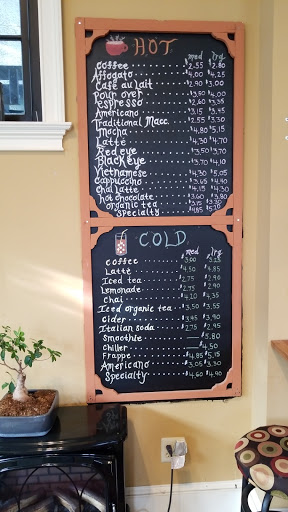 HOT
med lrg
Coffee 2.55 $2.80
Affogato $4.00 $4.25
Café au lait $2.90 $3.00
Pour over $3.50 $4.00
Espresso $2.60 $3.35
Americano $3.15 $3.45
Traditional Macc. $2.55 $3.30
Mocha $4.80 $5.15
Latté $4.30 $4.70
Red eye $3.50 $3.75
Black eye $3.70 $4.10
Vietnamese $4.30 $5.05
Cappuccino $3.65 $4.15
Chai latté $4.15 $4.30
Hot chocolate $3.60
Organic tea $3.15
Specialty $4.85
COLD
med lrg
Coffee 3.00
Latté $4.50 $4.85
Iced tea $2.75 $2.90
Lemonade $2.75
Chai $4.20 $4.35
Iced organic tea $3.50 $3.55
Cider $3.45 $3.90
Italian soda $2.75 $2.95
Smoothie $5.50
Chiller $4.50
Frappe $4.85 $5.15
Americano $3.05 $3.30
Specialty $4.60 $4.90